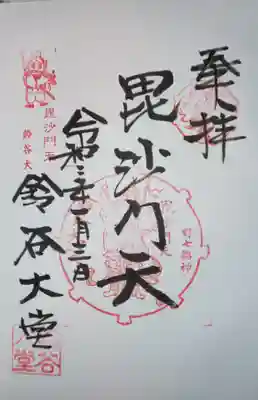 奉拝
毘沙門天
令和三年一月三日
鈴谷大堂
毘沙門天
鈴谷大
町七福神